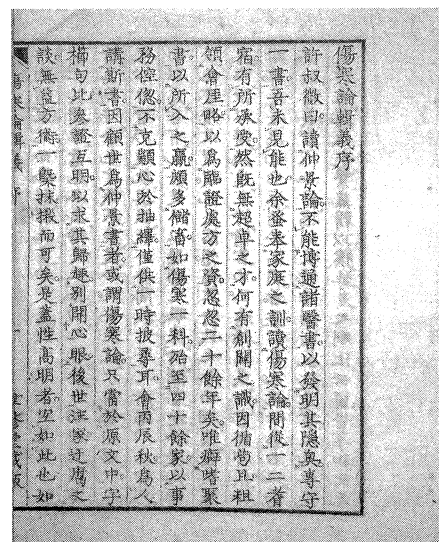 傷寒論輯義序
許叔微曰讀仲景論不能博通諸醫書以發明其隱奧專守
一書吾未見能也余蚤奉家庭之訓讀傷寒論間從一二耆
宿有所承受然既無超卓之才何有創闢之識因循苟且粗
領會厓略以爲臨證處方之資忽忽二十餘年矣唯癖嗜聚
書以所入之贏頗多儲畜如傷寒一科殆至四十餘家以事
務倥偬不克顓心於抽繹僅供一時披尋耳會丙辰秋爲人
講斯書因顧世爲仲景書者或謂傷寒論只當於原文中字
櫛句比參證互明以求其歸趣別開心眼後世註家迂腐之
談無益方術一槩抹摋而可矣是蓋性高明者宜如此也如
傷寒論輯義 序 一